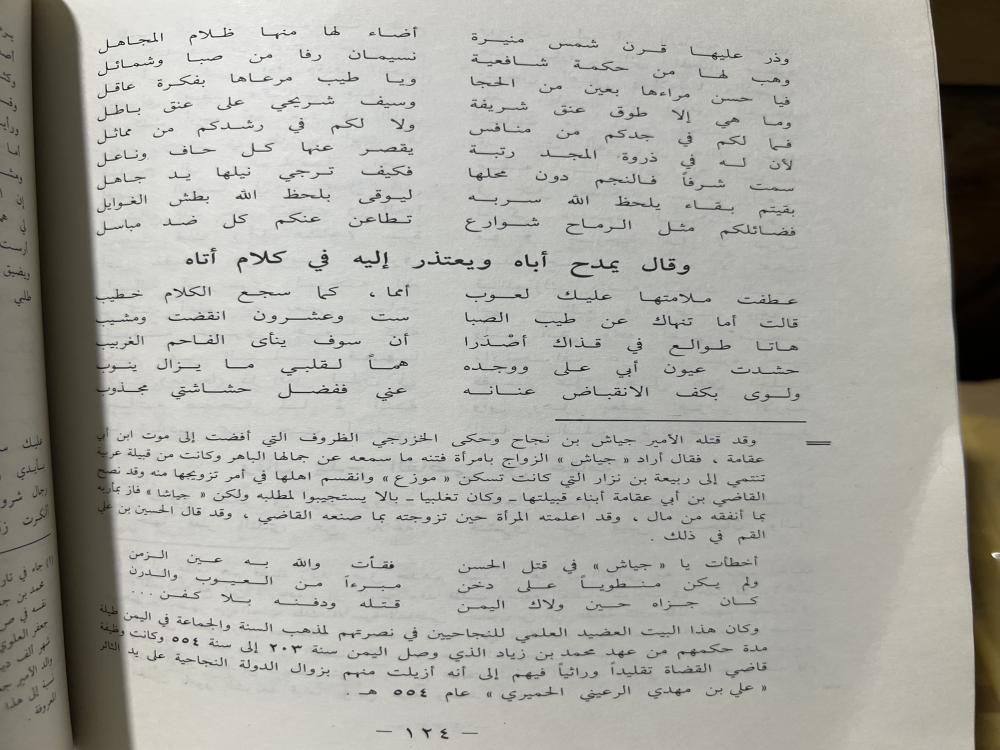 وذر عليها قرن شمس منيرة أضاء لها منها ظلام المجاهل
وهب لها من حكمة شافعية نسيمان رفا من صبا وشمائل
فيا حسن مراءها بعين من الحجا ويا طيب مرعاها بفكرة عاقل
وما هي إلا طوق عنق شريفة وسيف شريحي على عنق باطل
فما لكم في جدكم من منافس ولا لكم في رشدكم من مماثل
لأن له في ذروة المجد رتبة يقصر عنها كل حاف وناعل
سمت شرفاً فالنجم دون محلها فكيف ترجي نيلها يد جاهل
بقيتم بقاء يلحظ الله سربه ليوقى بلحظ الله بطش الغوايل
فضائلكم مثل الرماح شوارع تطاعن عنكم كل ضد مباسل
وقال يمدح أباه ويعتذر إليه في كلام أتاه
عطفت ملامتها عليك لعوب أمما، كما سجع الكلام خطيب
قالت أما تنهاك عن طيب الصبا ست وعشرون انقضت ومشيب
هاتا طوالع في قذاك أصْدَرا أن سوف ينأى الفاحم الغربيب
حشدت عيون أبي على ووجده هماً لقلبي ما يزال ينوب
ولوى بكف الانقباض عنانه عني ففضل حشاشتي مجذوب
= وقد قتله الأمير جياش بن نجاح وحكى الخزرجي الظروف التي أفضت إلى موت ابن أبي
عقامة ، فقال أراد « جياش » الزواج بامرأة فتنه ما سمعه عن جمالها الباهر وكانت من قبيلة عربية
تنتمي إلى ربيعة بن نزار التي كانت تسكن « موزع » وانقسم اهلها في أمر تزويجها منه وقد نصح
القاضي بن أبي عقامة أبناء قبيلتها - وكان تغلبيا - بالا يستجيبوا لمطلبه ولكن « جياشا » فاز بمأربه
بما أنفقه من مال ، وقد اعلمته المرأة حين تزوجته بما صنعه القاضي ، وقد قال الحسين بن علي
القم في ذلك .
أخطأت يا « جياش » في قتل الحسن فقأت والله به عين الزمن
ولم يكن منطوياً على دخن مبرءاً من العيوب والدرن
كان جزاه حين ولاك اليمن قتله ودفنه بلا كفن ...
وكان هذا البيت العضيد العلمي للنجاحيين في نصرتهم لمذهب السنة والجماعة في اليمن طيلة
مدة حكمهم من عهد محمد بن زياد الذي وصل اليمن سنة ٢٠٣ إلى سنة ٥٥٤ وكانت وظيفة
قاضي القضاة تقليداً وراثياً فيهم إلى أنه أزيلت منهم بزوال الدولة النجاحية على يد الثائر
« علي بن مهدي الرعيني الحميري » عام ٥٥٤ هـ .
— ١٢٤ —